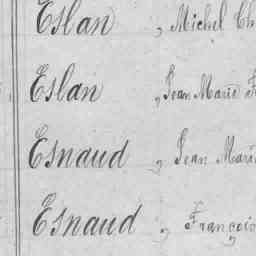 Eslan , Michel Ch
Eslan , Jean Marie F
Esnaud , Jean Marie
Esnaud , François